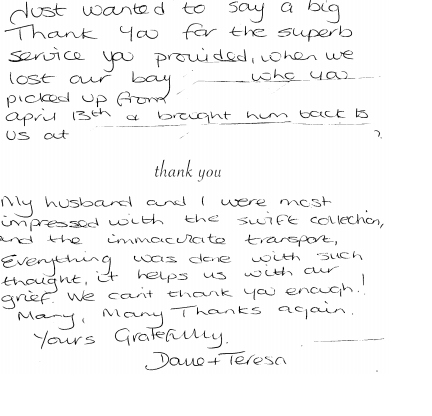 Just wanted to say a big
Thank you for the superb
service you provided, when we
lost our boy who you
picked up from
april 13th & brought him back to
us at
thank you
My husband and I were most
impressed with the swift collection,
and the immaculate transport,
Everything was done with such
thought, it helps us with our
grief. We can't thank you enough!!
Many, Many Thanks again.
Yours Gratefully.
Dave + Teresa